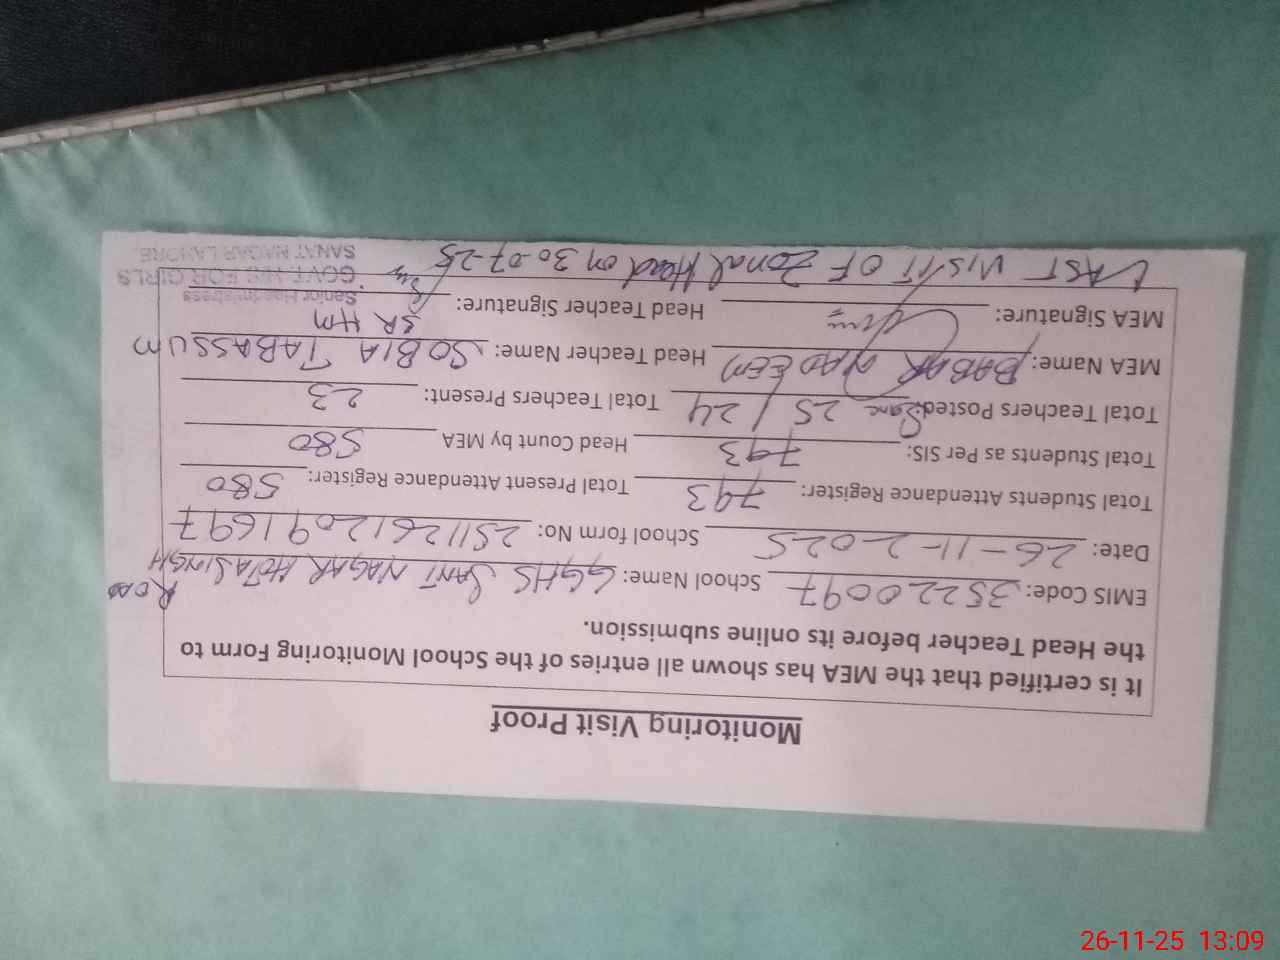 Monitoring Visit Proof
It is certified that the MEA has shown all entries of the School Monitoring Form to
the Head Teacher before its online submission.
EMIS Code: 35220097 School Name: GGHS SANT NAGAR HOTASINGH
ROAD
Date: 26-11-2025 School form No: 25112612091697
Total Students Attendance Register: 793 Total Present Attendant Register: 580
Total Students as Per SIS: 793 Head Count by MEA 580
Total Teachers Posted: Sanc 25 / 24 Total Teachers Present: 23
MEA Name: BABAR NADEEM Head Teacher Name: SOBIA TABASSUM
SR HM
MEA Signature: Head Teacher Signature:
Senior Headmistress
GOVT. HIG FOR GIRLS
SANAT NAGAR LAHORE.
LAST VISIT OF Zonal Head on 30-07-25
26-11-25 13:09